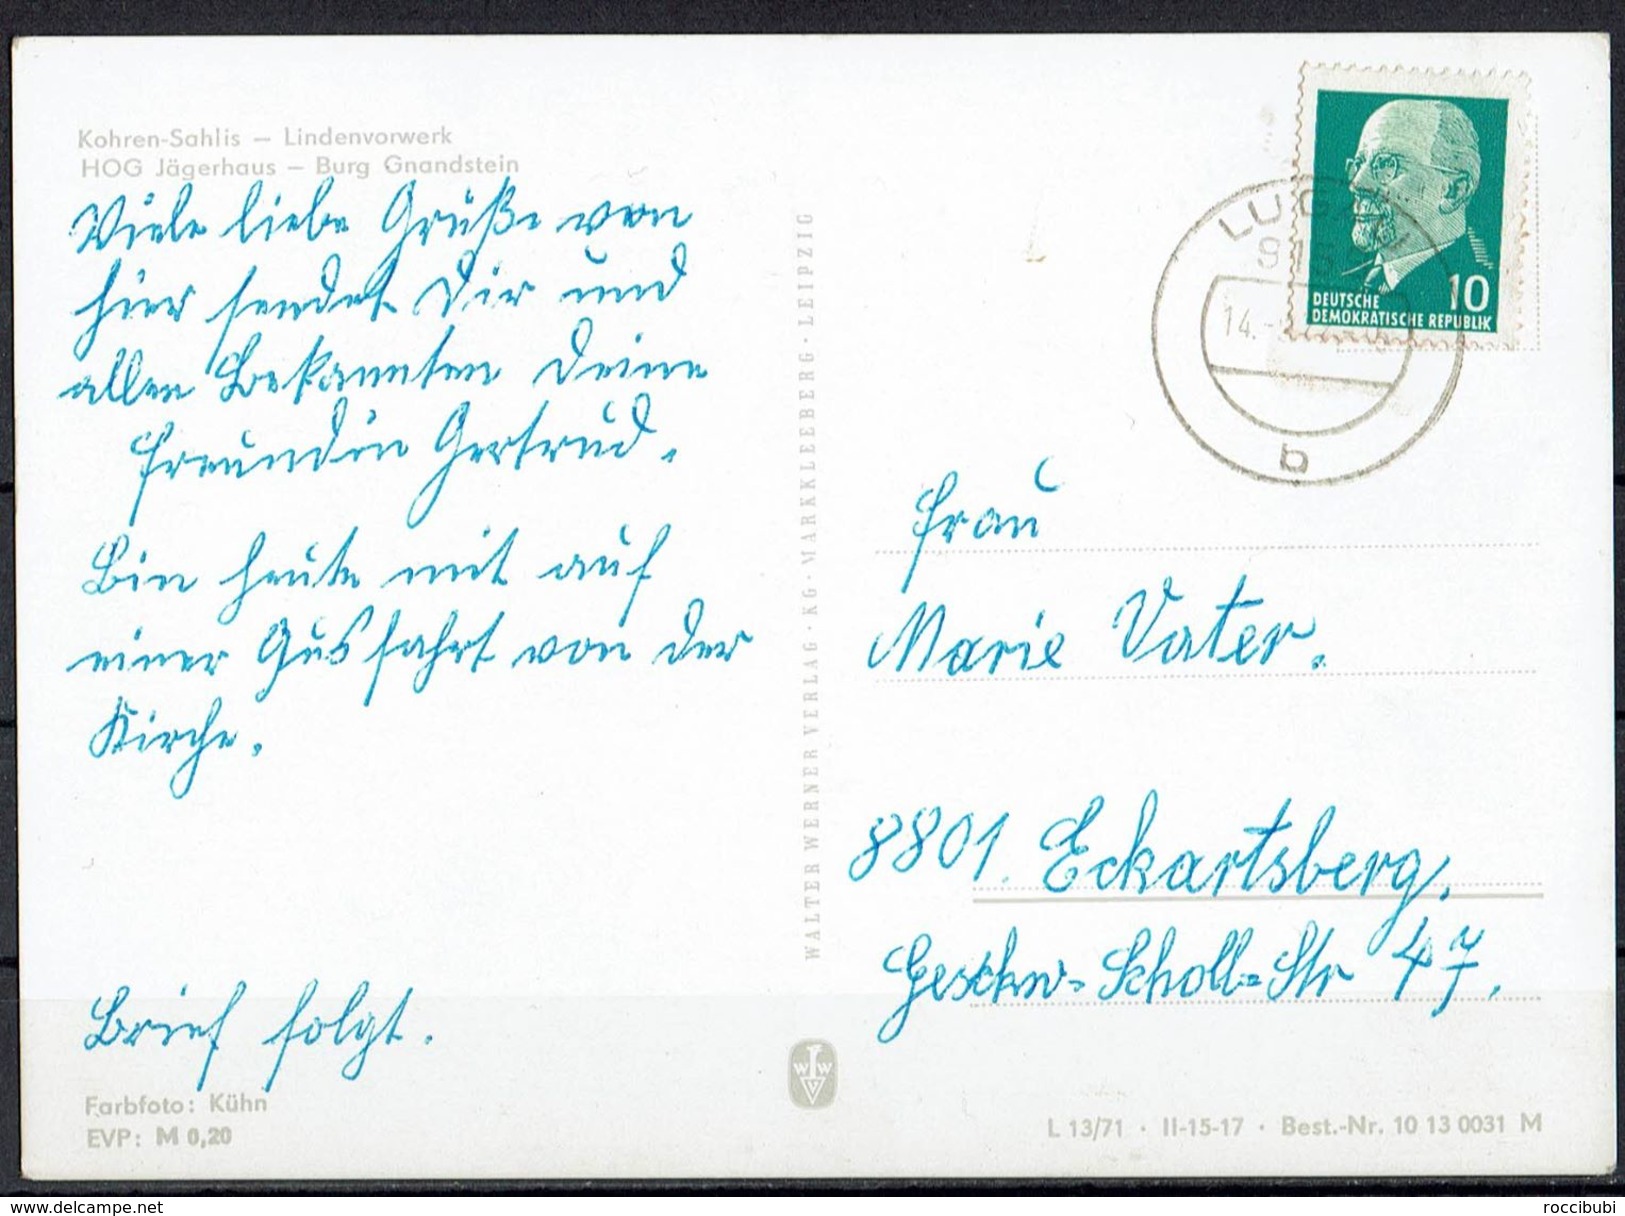 Kohren-Sahlis – Lindenvorwerk
HOG Jägerhaus – Burg Gnandstein
Viele liebe Grüße von
hier sendet Dir und
allen Bekannten Deine
Freundin Gertrud.
Bin heute mit auf
einer Ausfahrt von der
Kirche.
Brief folgt.
Farbfoto: Kühn
EVP: M 0,20
WALTER WERNER VERLAG · KG · MARKKLEEBERG · LEIPZIG
WWV
LUGAU
915
14.
b
10
DEUTSCHE
DEMOKRATISCHE REPUBLIK
Frau
Marie Vater.
8801. Eckartsberg,
Geschw.-Scholl=Str 47.
L 13/71 · II-15-17 · Best.-Nr. 10 13 0031 M
delcampe.net
roccibubi